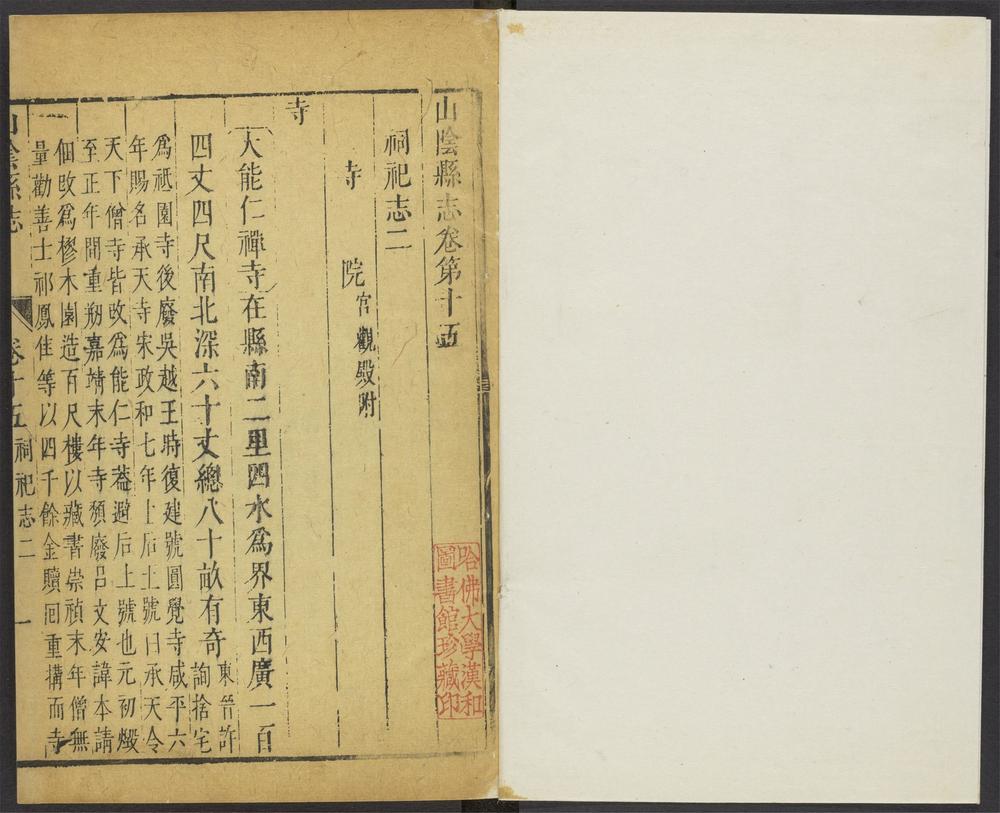 山陰縣志卷第十五
祠祀志二
寺
院宮觀殿附
寺
大能仁禪寺在縣南二里四水爲界東西廣一百
四丈四尺南北深六十丈總八十畝有奇
東晉許
詢捨宅
爲祗園寺後廢吳越王時復建號圓覺寺咸平六
年賜名承天寺宋政和七年上后土號曰承天令
天下僧寺皆改爲能仁寺葢避后土號也元初燬
至正年間重剏嘉靖末年寺頽廢呂文安諱本請
佃改爲樛木園造百尺樓以藏書崇禎末年僧無
量勸善士祁鳳佳等以四千餘金贖囘重搆而寺
山陰縣志 卷十五 祠祀志二 一
哈佛大學漢和
圖書館珍藏印